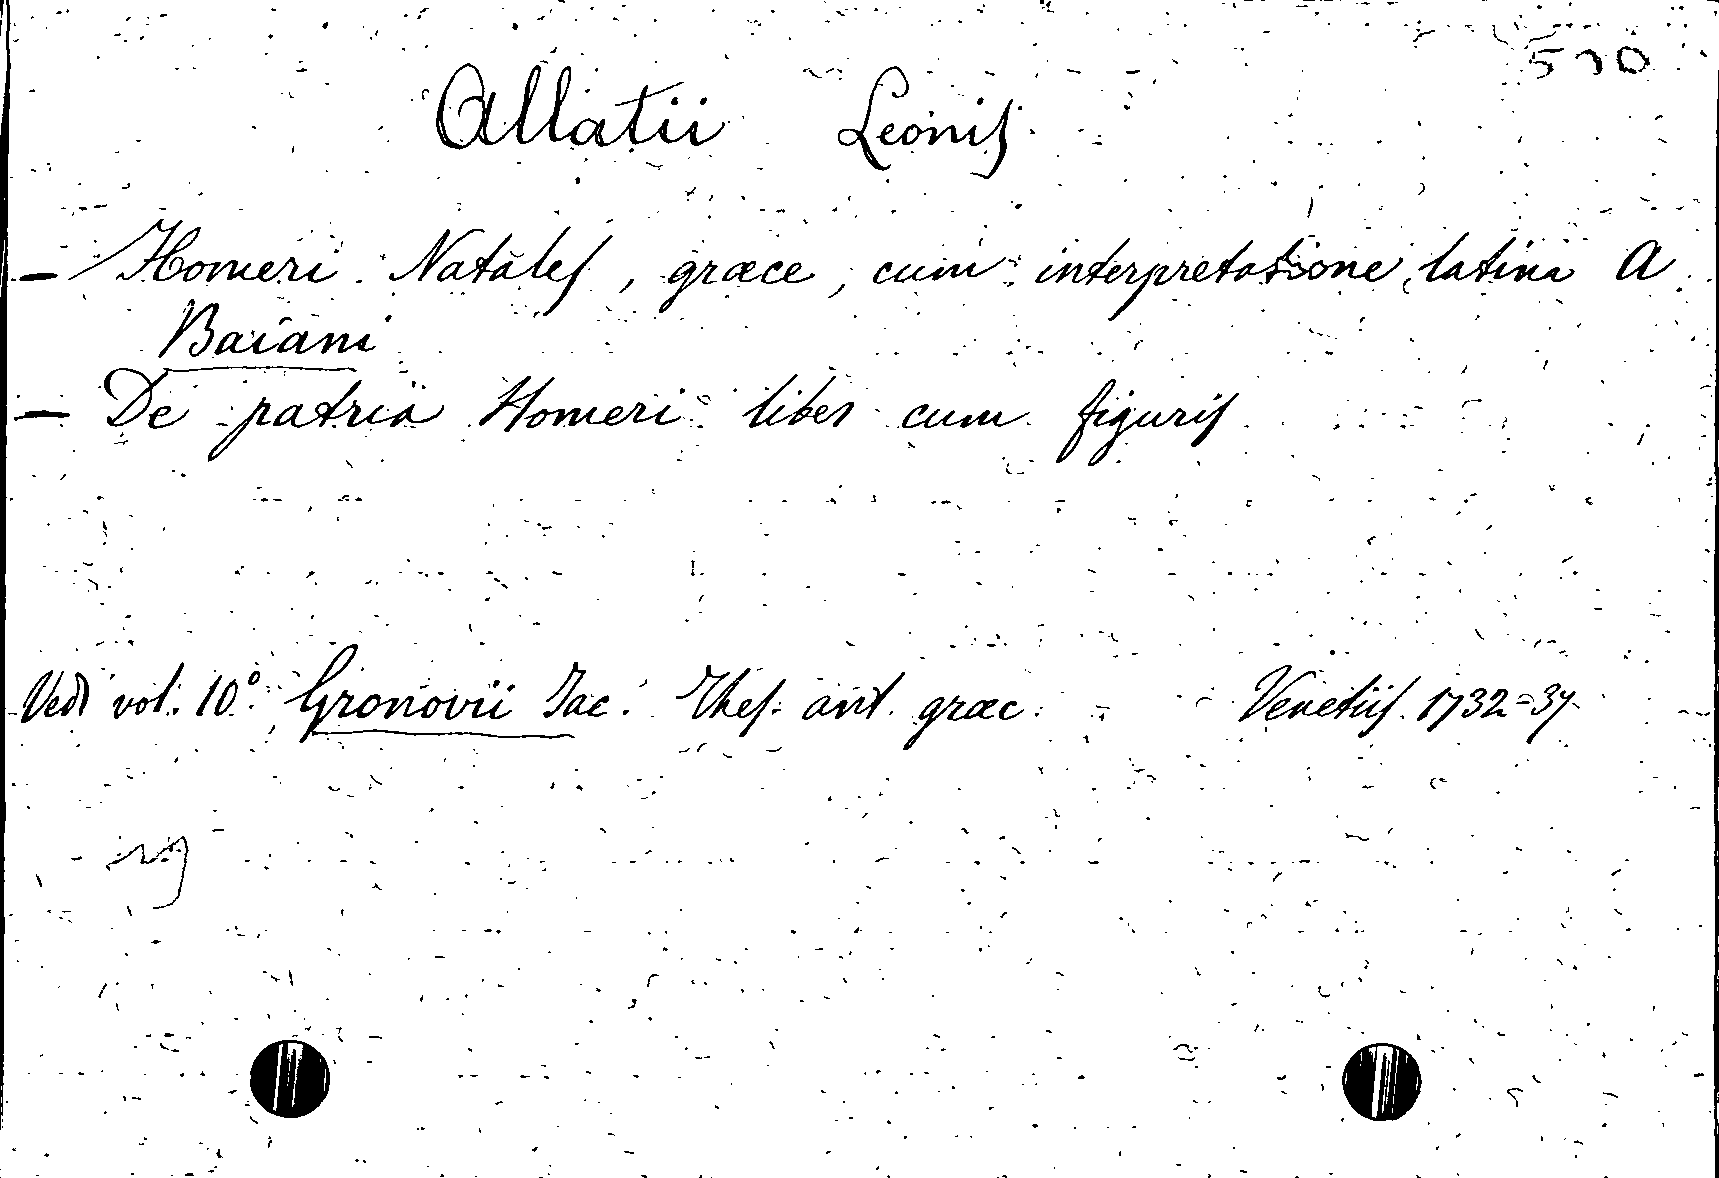 Allatii Leonis
— Homeri Natales, græce, cum interpretatione latina A.
Baiani
— De patria Homeri liber cum figuris
Vedi vol. 10º. Gronovii Jac. Thes. ant. græc. Venetiis. 1732=37